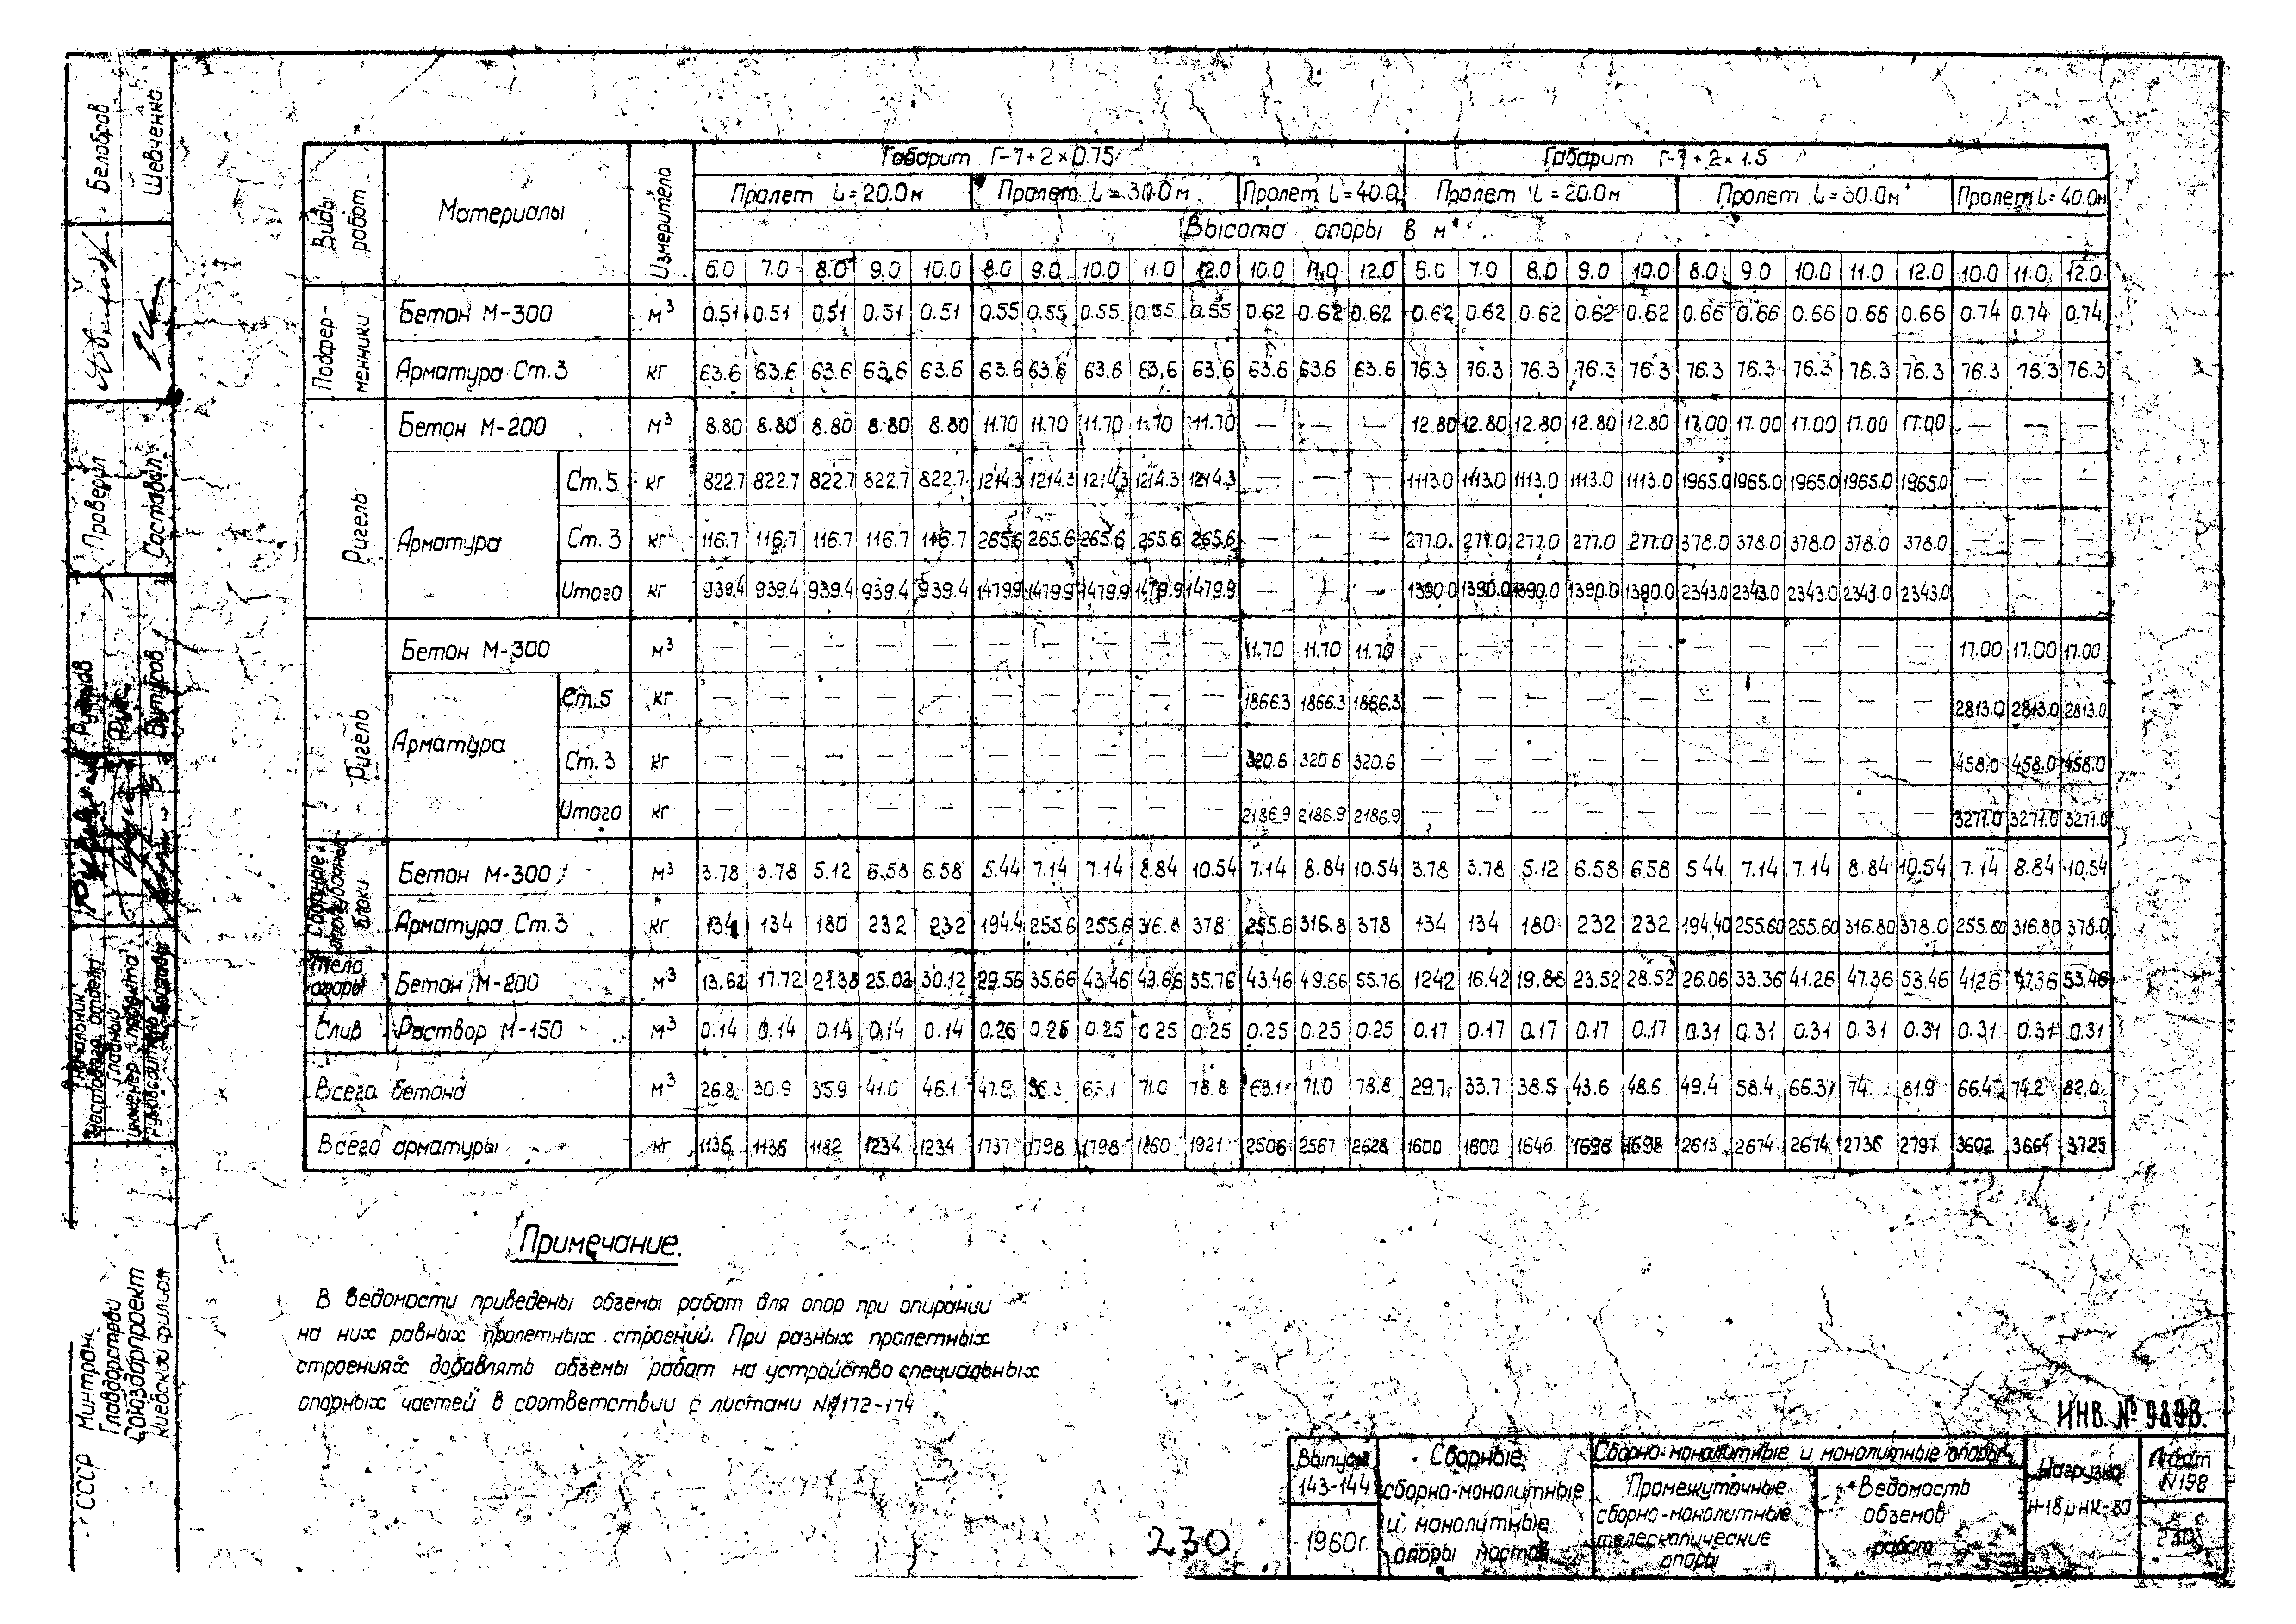 Габарит Г-7+2×0.75
Габарит Г-7+2×1.5
Виды работ
Материалы
Измеритель
Пролет L=20.0м
Пролет L=30.0м
Пролет L=40.0
Пролет L=20.0м
Пролет L=30.0м
Пролет L=40.0м
Высота опоры в м
6.0 7.0 8.0 9.0 10.0 8.0 9.0 10.0 11.0 12.0 10.0 11.0 12.0 6.0 7.0 8.0 9.0 10.0 8.0 9.0 10.0 11.0 12.0 10.0 11.0 12.0
Подфер-
менники
Бетон М-300 м³ 0.51 0.51 0.51 0.51 0.51 0.55 0.55 0.55 0.55 0.55 0.62 0.62 0.62 0.62 0.62 0.62 0.62 0.62 0.66 0.66 0.66 0.66 0.66 0.74 0.74 0.74
Арматура Ст.3 кг 63.6 63.6 63.6 63.6 63.6 63.6 63.6 63.6 63.6 63.6 63.6 63.6 63.6 76.3 76.3 76.3 76.3 76.3 76.3 76.3 76.3 76.3 76.3 76.3 76.3 76.3
Ригель
Бетон М-200 м³ 8.80 8.80 8.80 8.80 8.80 11.70 11.70 11.70 11.70 11.70 — — — 12.80 12.80 12.80 12.80 12.80 17.00 17.00 17.00 17.00 17.00 — — —
Арматура
Ст.5 кг 822.7 822.7 822.7 822.7 822.7 1214.3 1214.3 1214.3 1214.3 1214.3 — — — 1113.0 1113.0 1113.0 1113.0 1113.0 1965.0 1965.0 1965.0 1965.0 1965.0 — — —
Ст.3 кг 116.7 116.7 116.7 116.7 116.7 265.6 265.6 265.6 265.6 265.6 — — — 277.0 277.0 277.0 277.0 277.0 378.0 378.0 378.0 378.0 378.0 — — —
Итого кг 939.4 939.4 939.4 939.4 939.4 1479.9 1479.9 1479.9 1479.9 1479.9 — — — 1390.0 1390.0 1390.0 1390.0 1390.0 2343.0 2343.0 2343.0 2343.0 2343.0 — — —
Ригель
Бетон М-300 м³ — — — — — — — — — — 11.70 11.70 11.70 — — — — — — — — — — 17.00 17.00 17.00
Арматура
Ст.5 кг — — — — — — — — — — 1866.3 1866.3 1866.3 — — — — — — — — — — 2813.0 2813.0 2813.0
Ст.3 кг — — — — — — — — — — 320.6 320.6 320.6 — — — — — — — — — — 458.0 458.0 458.0
Итого кг — — — — — — — — — — 2186.9 2186.9 2186.9 — — — — — — — — — — 3271.0 3271.0 3271.0
Сборные
блоки
Бетон М-300 м³ 3.78 3.78 5.12 6.58 6.58 5.44 7.14 7.14 8.84 10.54 7.14 8.84 10.54 3.78 3.78 5.12 6.58 6.58 5.44 7.14 7.14 8.84 10.54 7.14 8.84 10.54
Арматура Ст.3 кг 134 134 180 232 232 194.4 255.6 255.6 316.8 378 255.6 316.8 378 134 134 180 232 232 194.40 255.60 255.60 316.80 378.0 255.60 316.80 378.0
Тело опоры
Бетон М-200 м³ 13.62 17.72 21.38 25.02 30.12 29.56 35.66 43.46 49.66 55.76 43.46 49.66 55.76 1242 16.42 19.88 23.52 28.52 26.06 33.36 41.26 47.36 53.46 41.26 47.36 53.46
Слив Раствор М-150 м³ 0.14 0.14 0.14 0.14 0.14 0.25 0.25 0.25 0.25 0.25 0.25 0.25 0.25 0.17 0.17 0.17 0.17 0.17 0.31 0.31 0.31 0.31 0.31 0.31 0.31 0.31
Всего бетона м³ 26.8 30.9 35.9 41.0 46.1 47.5 56.3 63.1 71.0 78.8 63.1 71.0 78.8 29.7 33.7 38.5 43.6 48.6 49.4 58.4 66.3 74. 81.9 66.4 74.2 82.0
Всего арматуры кг 1136 1136 1182 1234 1234 1737 1798 1798 1860 1921 2506 2567 2628 1600 1600 1646 1698 1698 2613 2674 2674 2736 2797 3602 3664 3725
Примечание.
В ведомости приведены объемы работ для опор при опирании
на них равных пролетных строений. При разных пролетных
строениях добавлять объемы работ на устройство специальных
опорных частей в соответствии с листами NN172-174
ИНВ. № 9898.
230
Выпуск
143-144
1960г.
Сборные,
сборно-монолитные
и монолитные
опоры мостов
Сборно-монолитные и монолитные опоры
Промежуточные
сборно-монолитные
телескопические
опоры
Ведомость
объемов
работ
Нагрузка
Н-18 и НК-80
Лист
N198
Белобров
Шевченко
Проверил
Составил
Руднев
Бутуров
Начальник
мостового отдела
Главный
инженер проекта
СССР
Минтранс
Главдорстрой
Союздорпроект
Киевский филиал